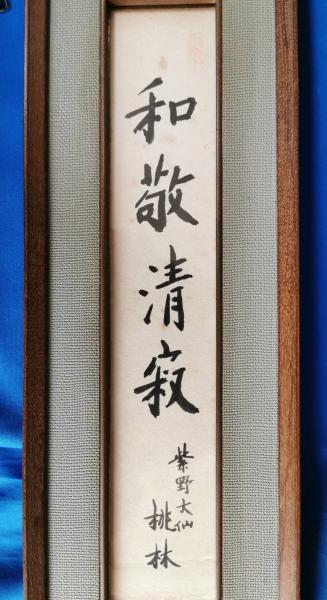 和敬清寂
紫野大仙
桃林